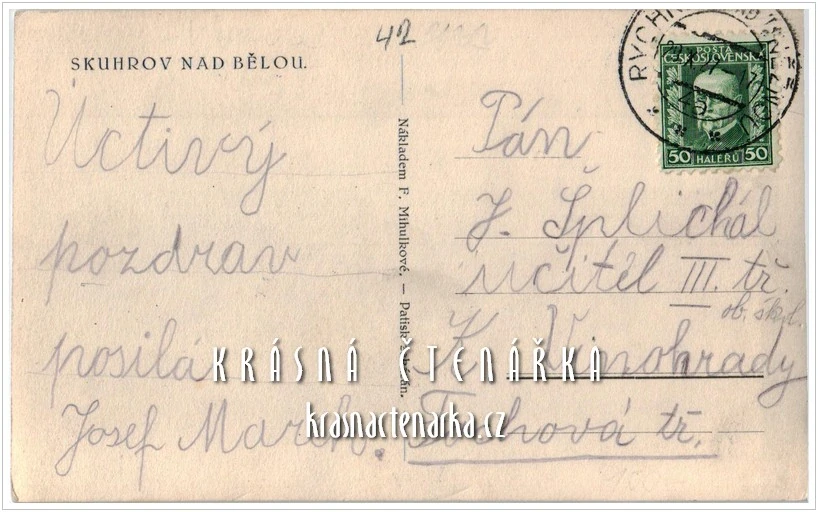 42
SKUHROV NAD BĚLOU.
Uctivý
pozdrav
posílá
Josef
Nákladem F. Mihulkové. — Patisk
POŠTA
ČESKOSLOVENSKÁ
50 HALÉŘŮ 50
Pán
J. Šplichál
učitel III. tř.
ob. škol.
K. Vinohrady
tř.
KRÁSNÁ ČTENÁŘKA
krasnactenarka.cz